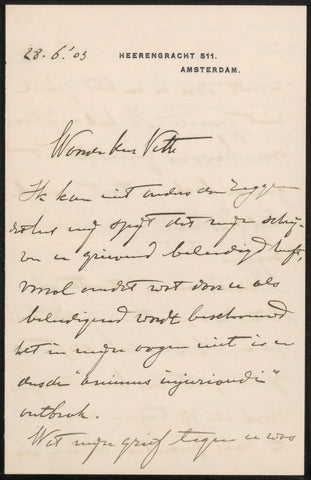 28.6.'03
HEERENGRACHT 511.
AMSTERDAM.
Waarde Heer Veth
Ik kan niet anders dan zeggen
dat het mij spijt dat mijn schrij-
ven u grievend beleedigd heeft,
vooral omdat wat door u als
beleedigend wordt beschouwd
het in mijn oogen niet is en
dus de "animus injuriandi"
ontbrak.
Wat mijn grief tegen u